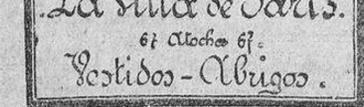 .La Villa de París.
67 Atocha 67.
Vestidos-Abrigos.